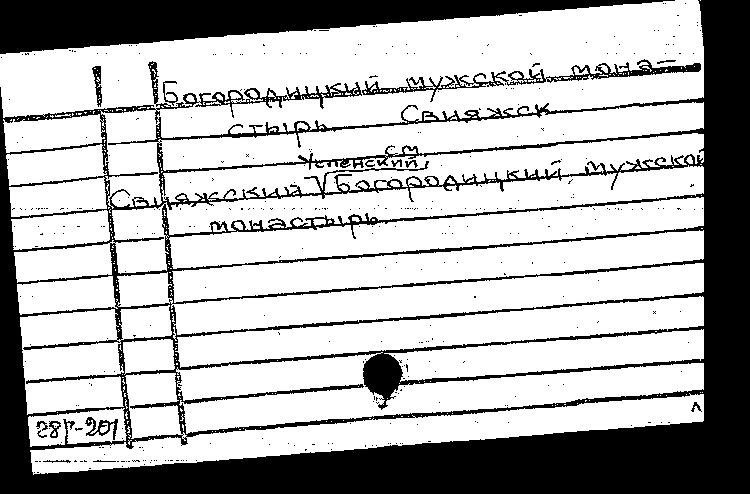 Богородицкий мужской мона-
стырь Свияжск
см
Успенский,
Свияжский √ Богородицкий мужской
монастырь